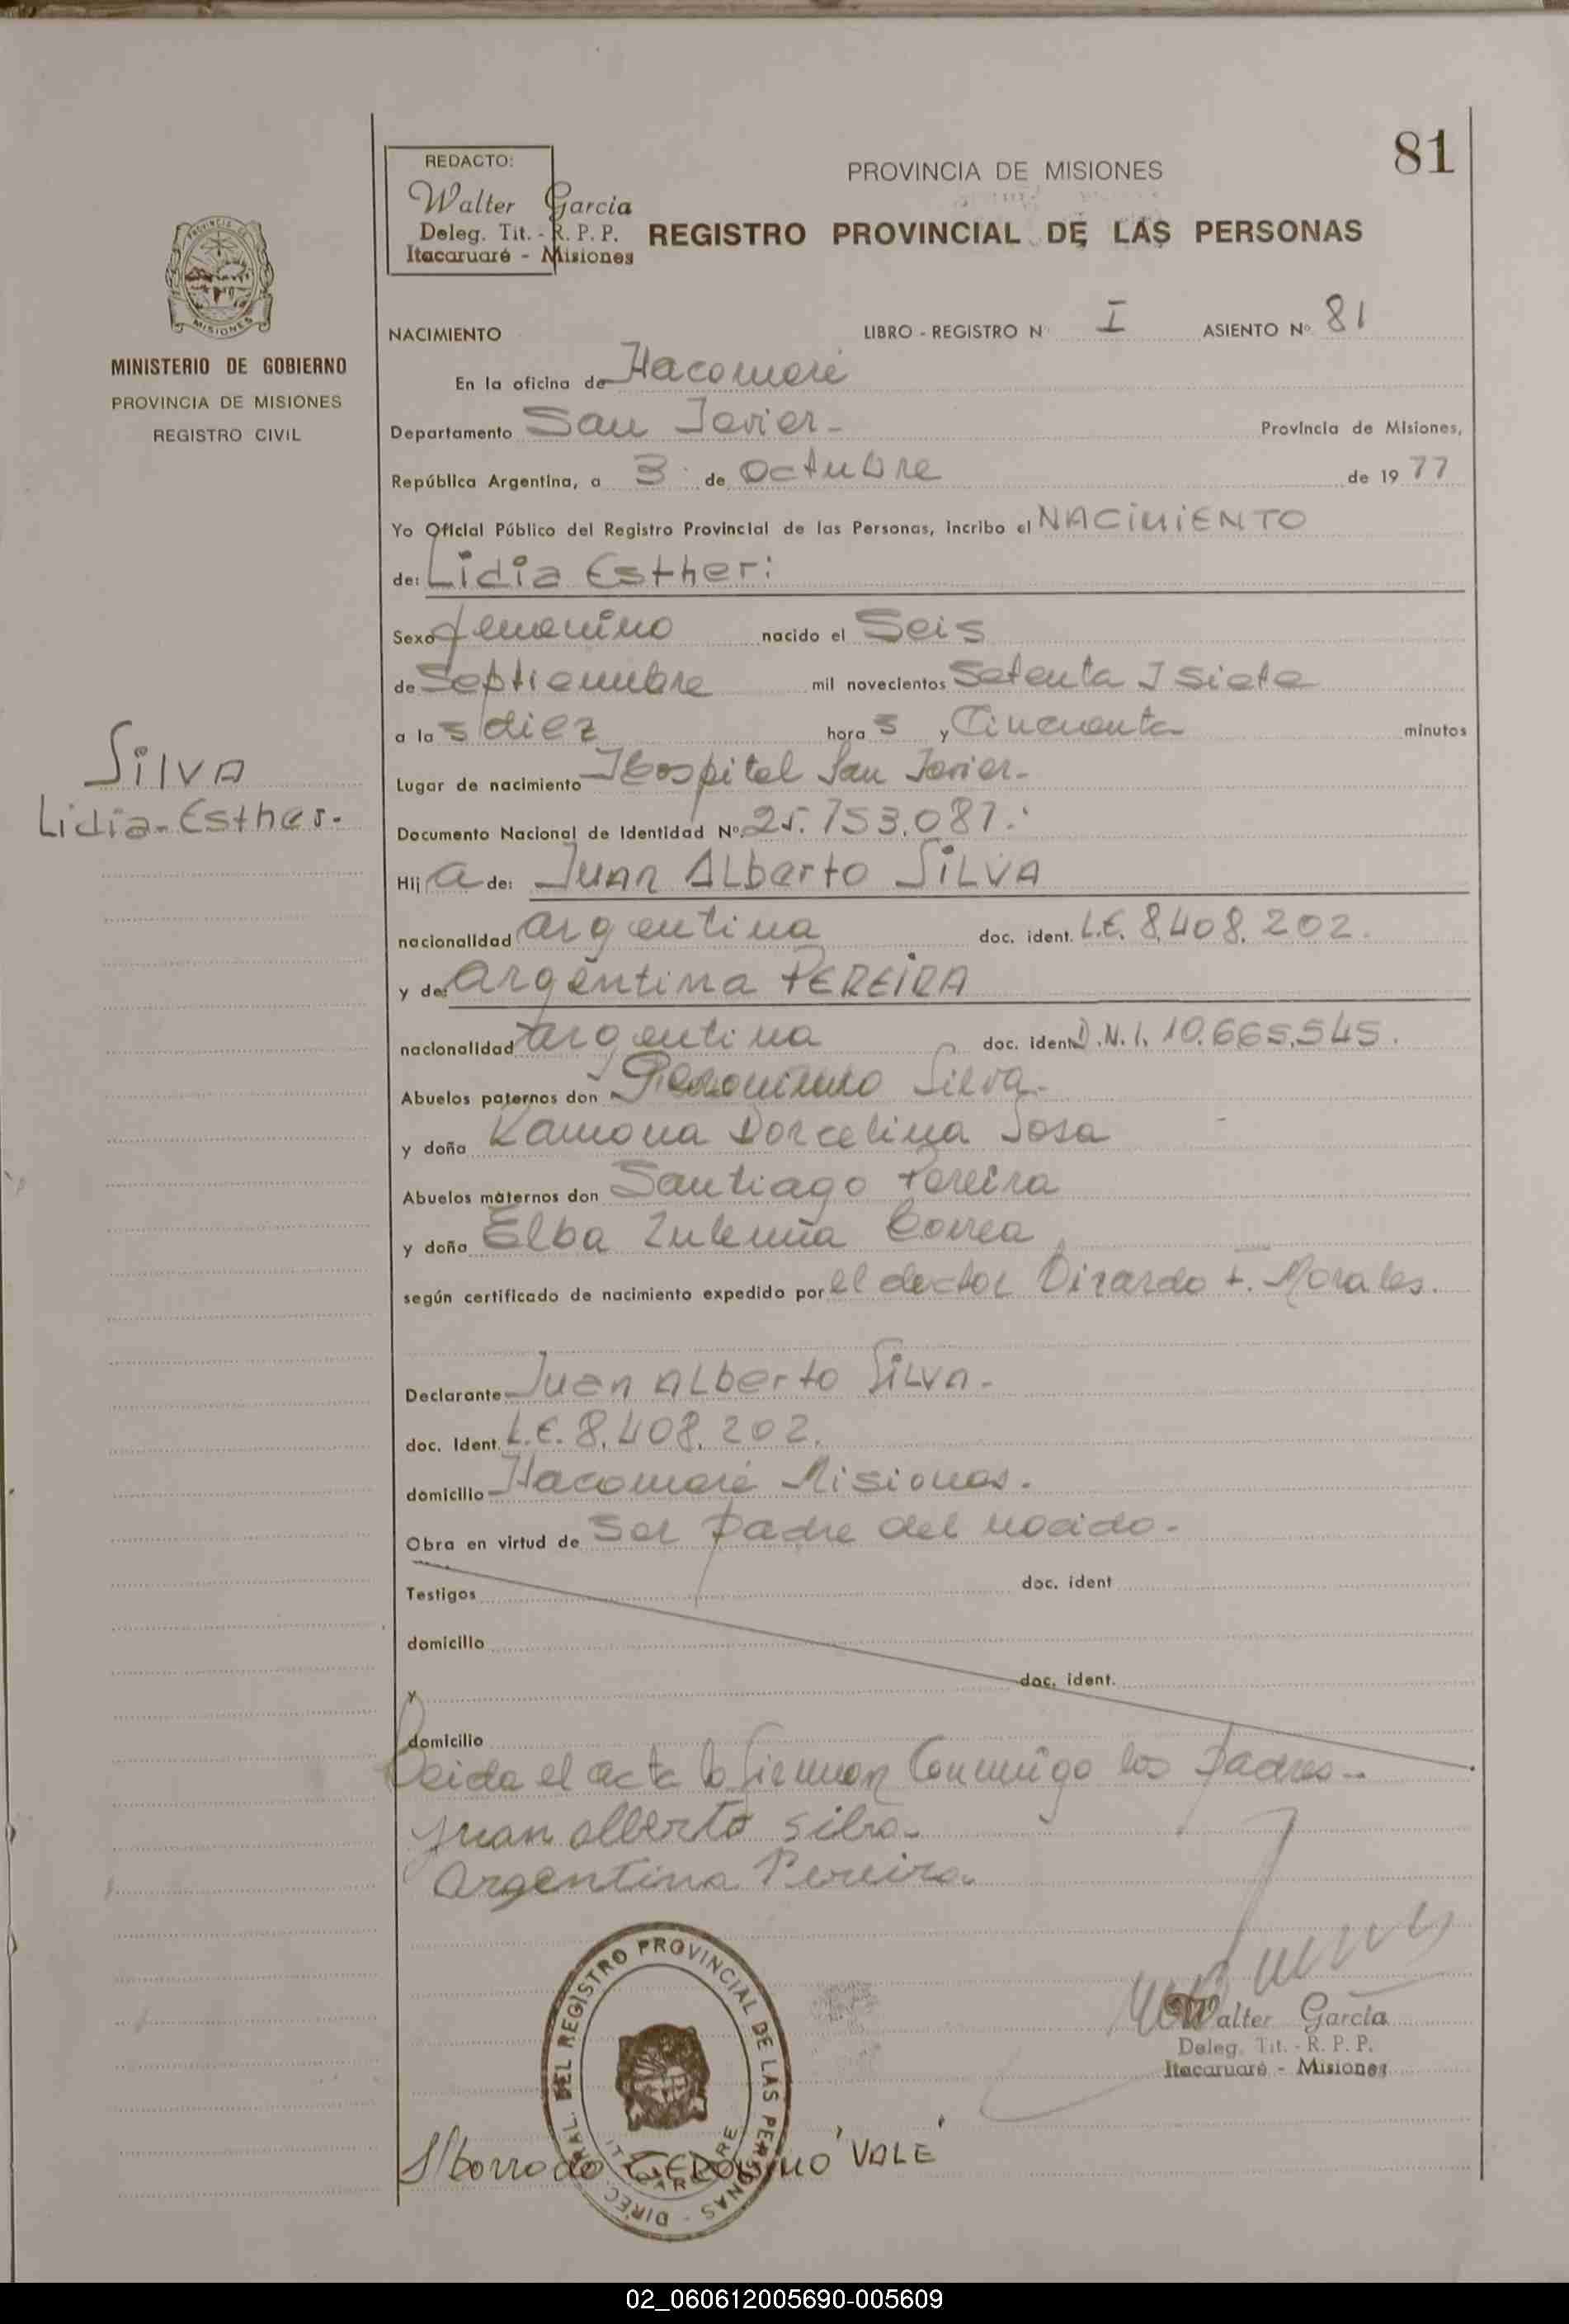 81
REDACTO:
Walter Garcia
Deleg. Tit. - R. P. P.
Itacaruaré - Misiones
PROVINCIA DE MISIONES
REGISTRO PROVINCIAL DE LAS PERSONAS
PROVINCIA DE
MISIONES
MINISTERIO DE GOBIERNO
PROVINCIA DE MISIONES
REGISTRO CIVIL
NACIMIENTO LIBRO - REGISTRO Nº I ASIENTO Nº 81
En la oficina de
Departamento San Javier - Provincia de Misiones,
República Argentina, a 3 de Octubre de 1977
Yo Oficial Público del Registro Provincial de las Personas, incribo el NACIMIENTO
de: Lidia Esther:
Sexo femenino nacido el Seis
de Septiembre mil novecientos Setenta I siete
a las diez horas y Cincuenta minutos
SILVA
Lidia-Esther-
Lugar de nacimiento Hospital San Javier-
Documento Nacional de Identidad Nº 25.753.087.-
Hija de: Juan ALberto SILVA
nacionalidad argentina doc. ident. L.E. 8.408.202.
y de: argentina PEREIRA
nacionalidad argentina doc. ident D.N.I. 10.665.545.
Abuelos paternos don Geronimo Silva-
y doña Ramona Dorcelina Sosa
Abuelos maternos don Santiago Pereira
y doña Elba Zulema Correa
según certificado de nacimiento expedido por el doctor Morales.
Declarante Juan ALberto SILVA-
doc. Ident. L.E. 8.408.202.
domicilio Misiones.
Obra en virtud de Ser padre del nacido-
Testigos doc. ident
domicilio
y doc. ident.
domicilio
Leida el acta la firman Conmigo los padres-
Juan alberto silva-
Argentina Pereira.
Walter García
Deleg. Tit. - R. P. P.
Itacaruaré - Misiones
DIREC. GRAL. DEL REGISTRO PROVINCIAL DE LAS PERSONAS
ITACARUARE
S/borrado GERONIMO 'VALE'
02_060612005690-005609